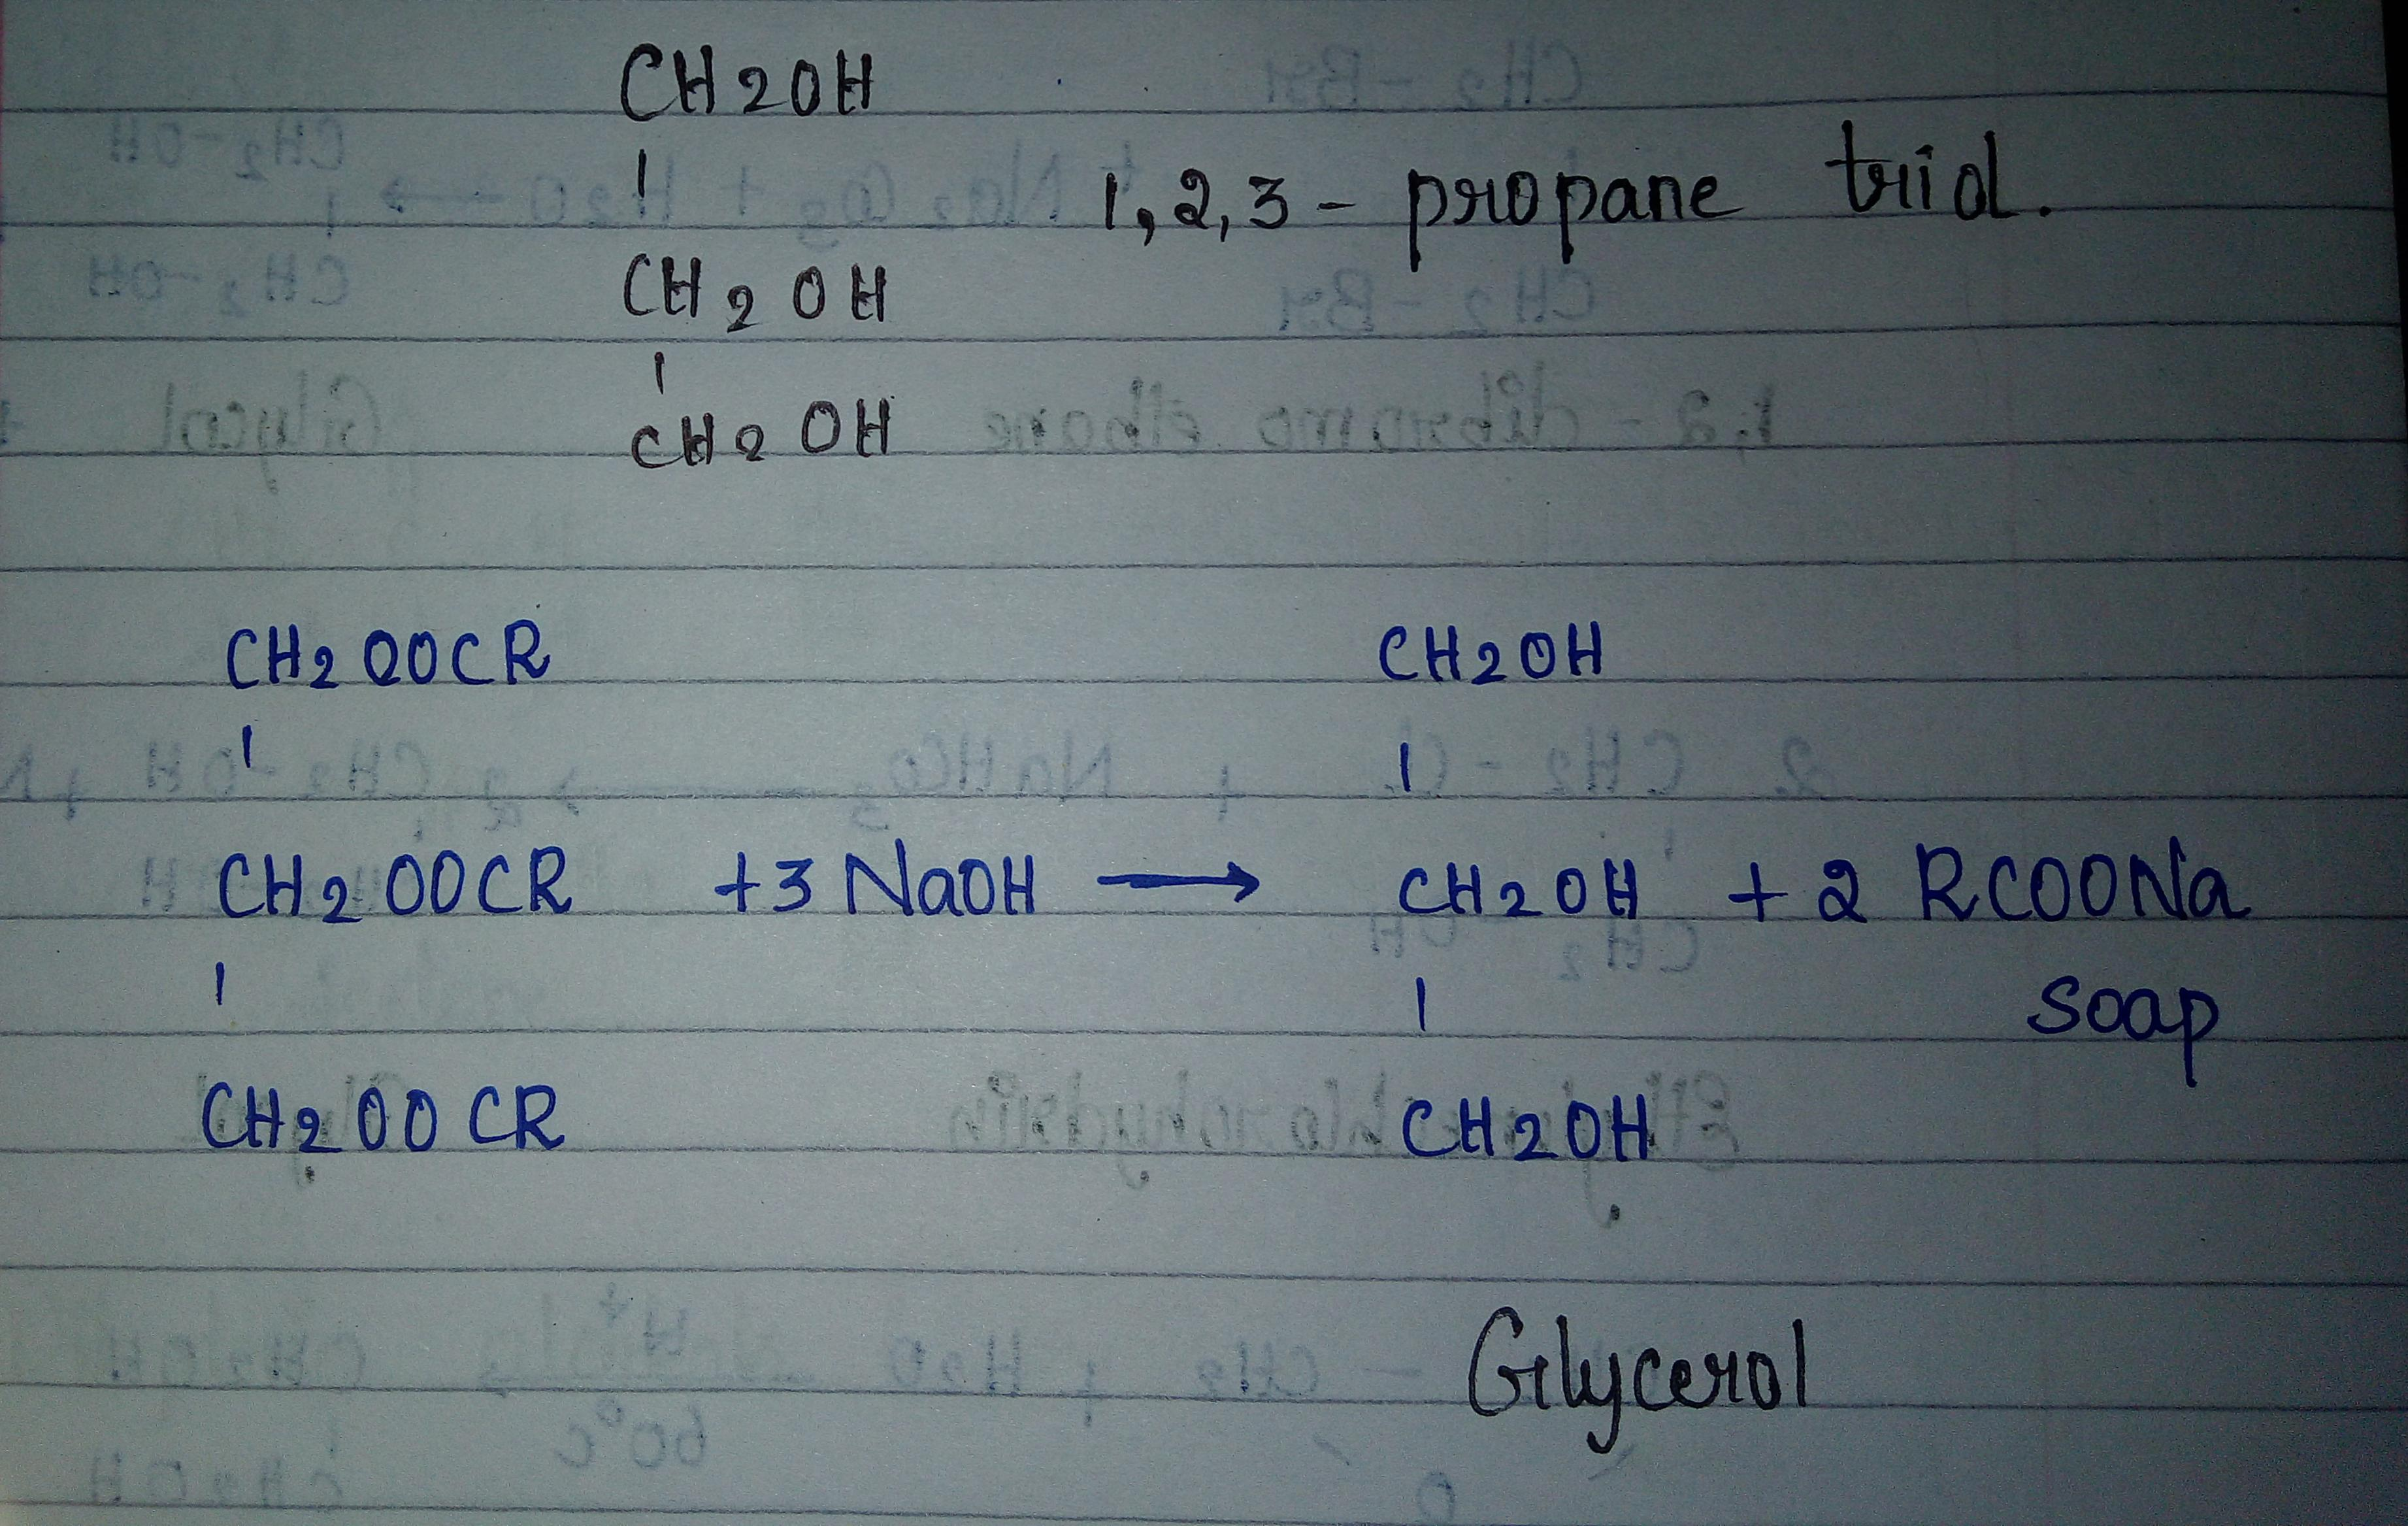 CH2OH
1, 2, 3 - propane triol.
CH2OH
CH2OH
CH2OOCR
CH2OH
CH2OOCR +3 NaOH → CH2OH + 2 RCOONa
soap
CH2OOCR
CH2OH
Glycerol